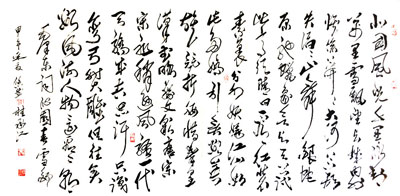 北国风光千里冰封
万里雪飘望长城内外
惟余莽莽大河上下顿
失滔滔山舞银蛇
原驰蜡象欲与天公试
比高须晴日看红装
素裹分外妖娆江山如
此多娇引无数英雄
竞折腰惜秦皇
汉武略输文采唐宗
宋祖稍逊风骚一代
天骄成吉思汗只识
弯弓射大雕俱往矣
数风流人物还看今朝
毛泽东词沁园春雪
甲午